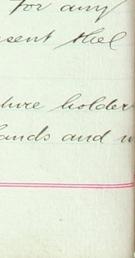 for any
sent the
ture holder
lands and